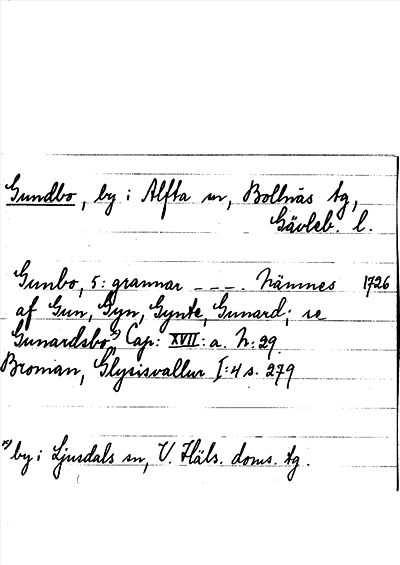 Gundbo, by i Alfta sn, Bollnäs tg,
Gävleb. l.
Gunbo, 5: grannar _ _ _ . Nämnes 1726
af Gun, Gyn, Gynte, Gunard; se
Gunardsbo *) Cap: XVII: a. N: 29.
Broman, Glysisvallur I:4 s. 279
*) by i Ljusdals sn, V. Häls. doms. tg.